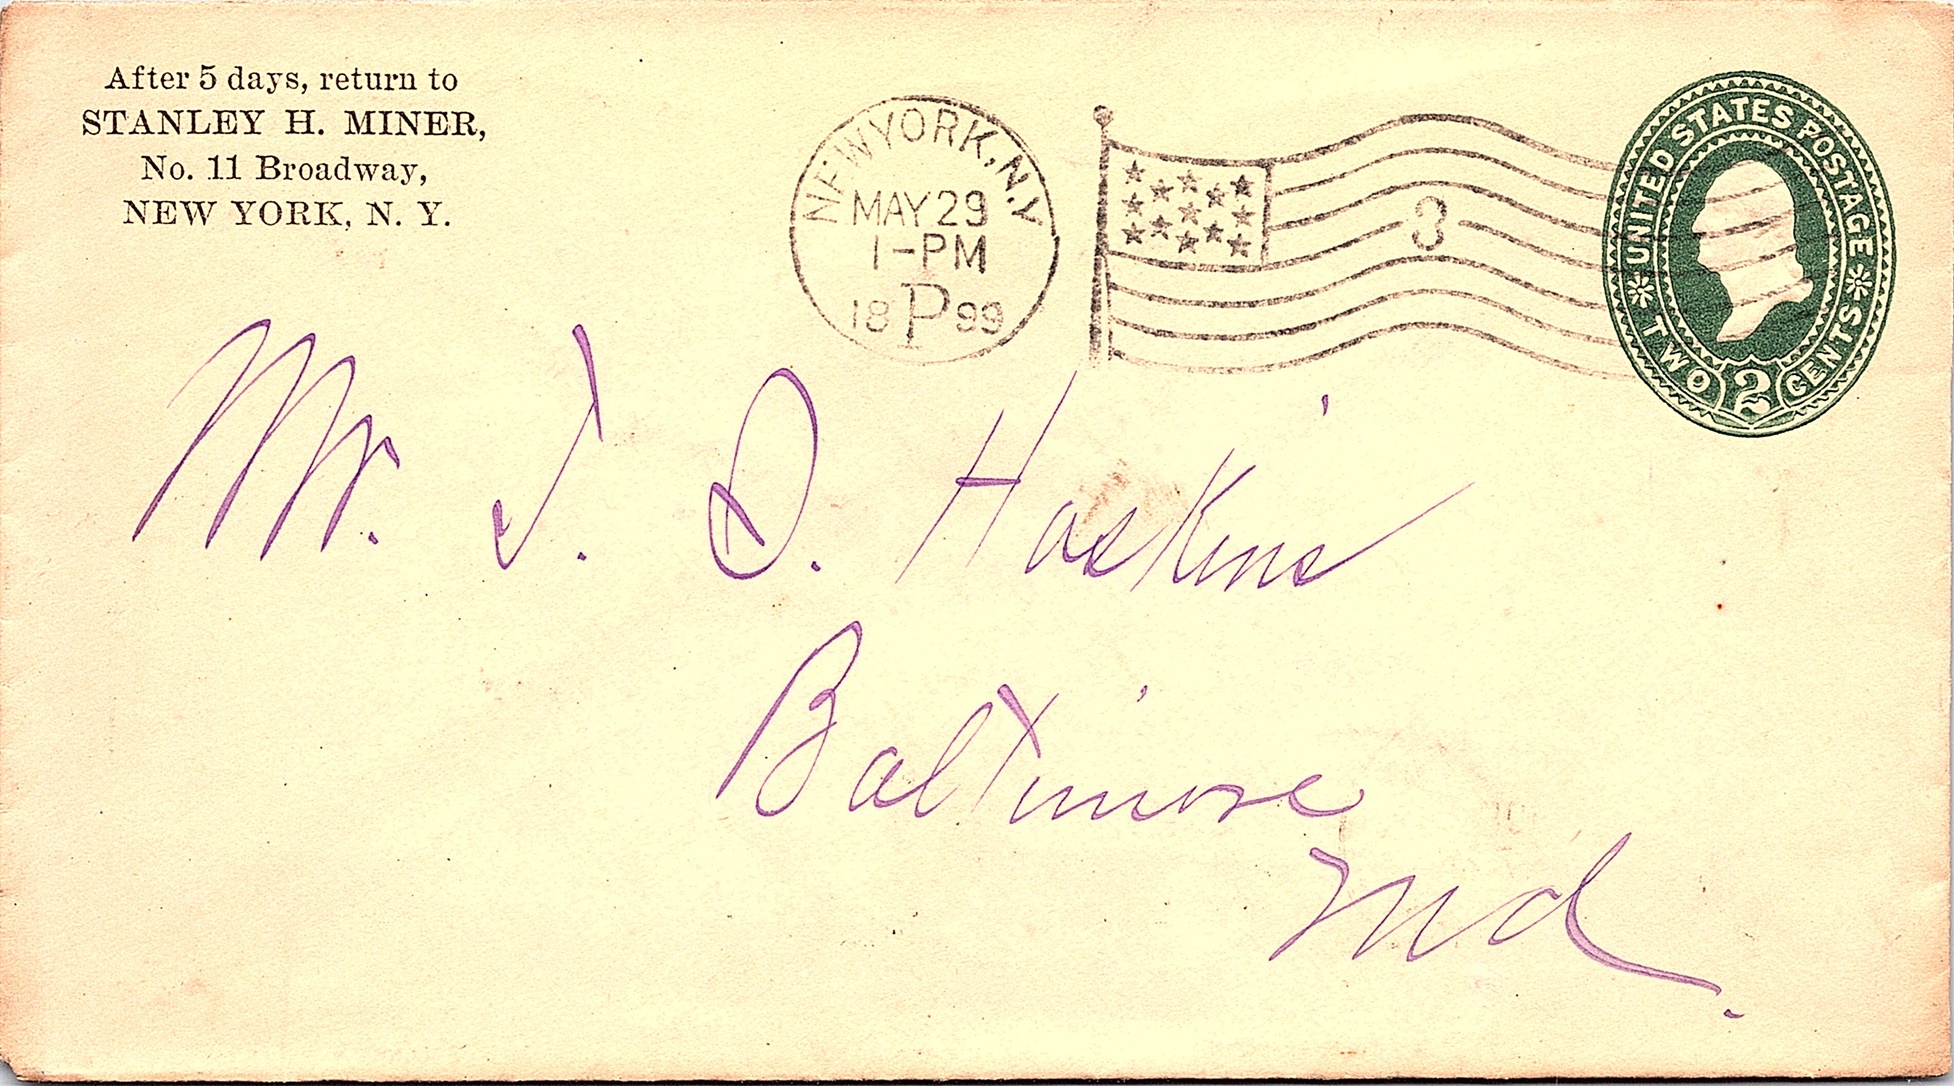 After 5 days, return to
STANLEY H. MINER,
No. 11 Broadway,
NEW YORK, N. Y.
NEW YORK, N.Y.
MAY 29
1-PM
18 P 99
3
UNITED STATES POSTAGE
TWO 2 CENTS
Mr. J. D. Haskins
Baltimore
Md.